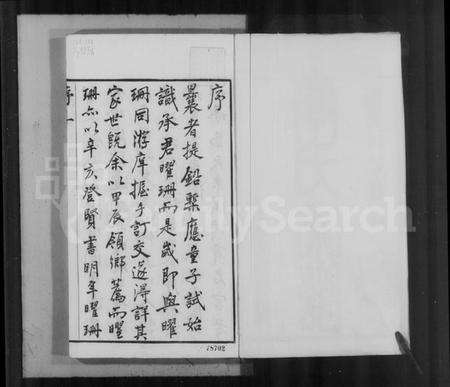 序
曩者提鉛槧應童子試始
識承君曜珊而是歲即與曜
珊同游庠握手訂交遂得詳其
家世既余以甲辰領鄉薦而曜
珊亦以辛亥登賢書明年曜珊
序 一
FamilySearch
78702